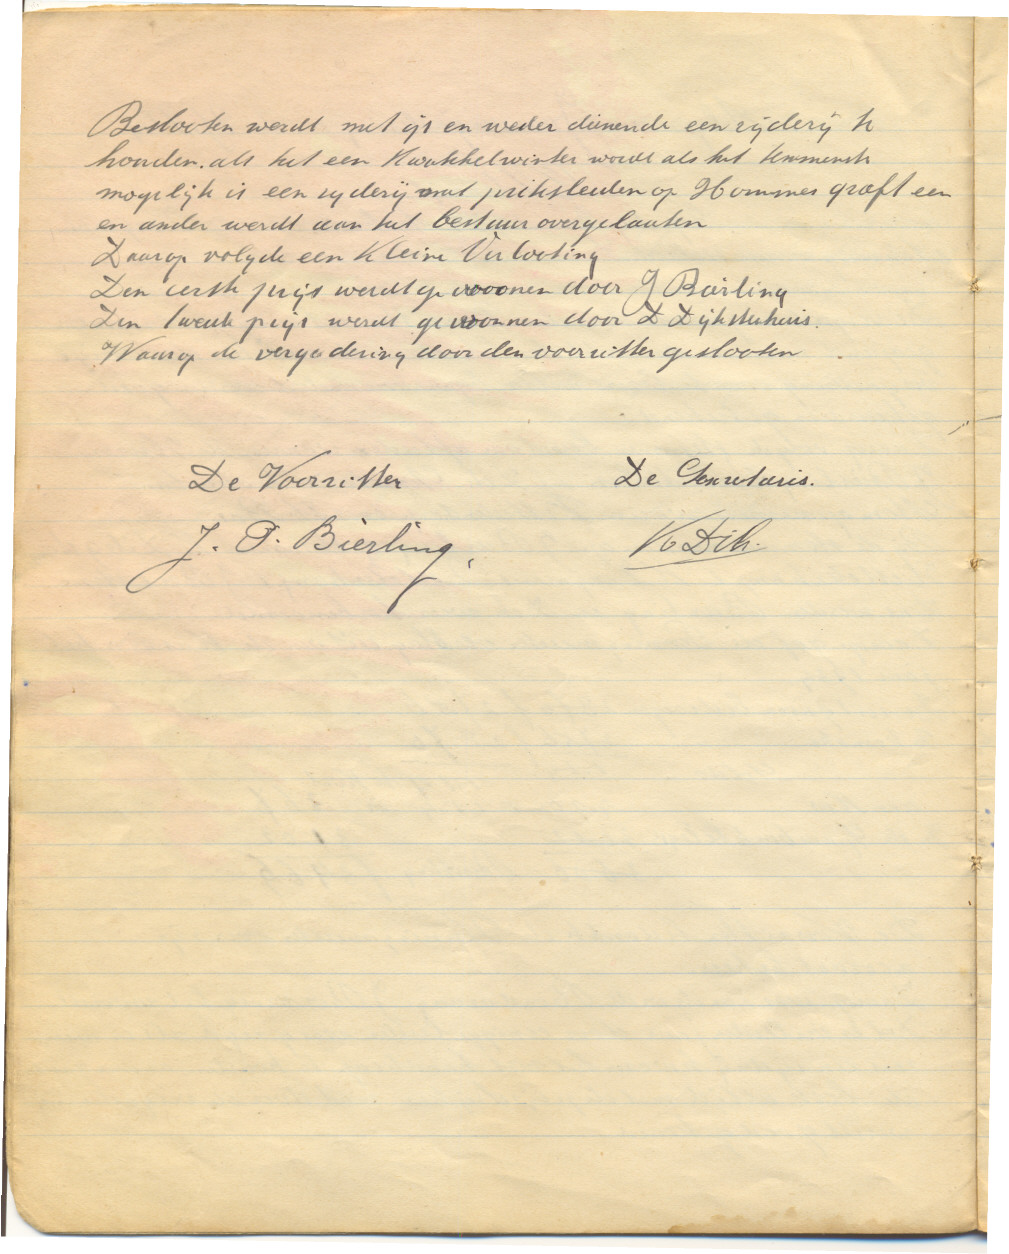 Beslooten werdt met ijs en weder dienende een rijderij te
houden. als het een Kwakkelwinter wordt als het temmenste
mogelijk is een rijderij met priksleeden op Hommes graft een
en ander werdt aan het bestuur overgelaaten
Daarop volgde een Kleine Verlooting
Den eerste prijs werdt gewoonen door J Bierling
Den tweede prijs werdt gewonnen door D Dijksterhuis.
Waarop de vergadering door den voorzitter geslooten
De Voorzitter
De Sekretaris.
J. P. Bierling
K Dik.